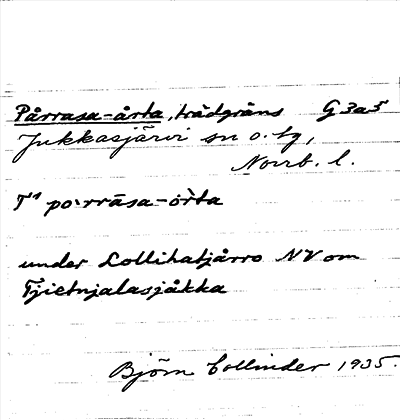 Pårrasa-årta, trädgräns G 3a5
Jukkasjärvi sn o. tg,
Norrb. l.
po·rrāsa-
under Lollihatjårro NV om
Tjietnjalasjåkka
Björn Collinder 1935.